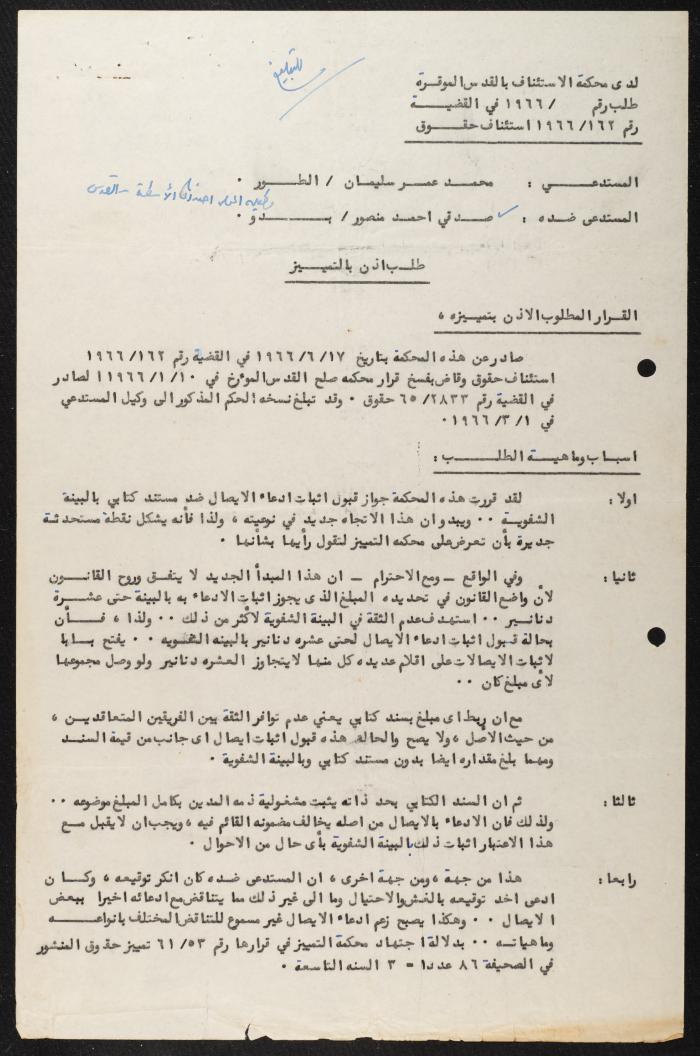 للتبليغ
لدى محكمة الاستئناف بالقدس الموقرة
طلب رقم / ١٩٦٦ في القضيــــة
رقم ١٦٢/ ١٩٦٦ استئناف حقــوق
المستدعــــــي : محمـد عمـر سليمان / الطــور ٠
المستدعى ضده : صـدقي احمد منصور/ بـــــدو ٠
طلـب اذن بالتمييــز
القرار المطلوب الاذن بتمييزه ،
صادر عن هذه المحكمة بتاريخ ١٧/ ٦/ ١٩٦٦ في القضية رقم ١٦٢/ ١٩٦٦
استئناف حقوق وقاض بفسخ قرار محكمه صلح القدس المؤرخ في ١٠/ ١/ ١٩٦٦ الصادر
في القضية رقم ٢٨٣٣/ ٦٥ حقوق ٠ وقد تبلغ نسخه الحكم المذكور الى وكيل المستدعي
في ١/ ٣/ ١٩٦٦ ٠
اسبـاب وماهيـة الطلـــب :
اولا : لقد قررت هذه المحكمة جواز قبول اثبات ادعاء الايصال ضد مستند كتابي بالبينة
الشفويـة ٠٠ ويبدو ان هذا الاتجاه جديد في نوعيته ، ولذا فأنه يشكل نقطة مستحدثـة
جديرة بأن تعرض على محكمه التمييز لتقول رأيها بشأنها ٠
ثانيا : وفي الواقع ــ ومع الاحترام ــ ان هذا المبدأ الجديد لا يتفـق وروح القانــون
لأن واضع القانون في تحديده المبلغ الذى يجوز اثبات الادعاء به بالبينة حتى عشـــرة
دنانـير ٠٠ استهـدف عدم الثقة في البينة الشفوية لأكثر من ذلك ٠٠ ولذا ، فــــأن
بحالة قبول اثبات ادعاء الايصال لحتى عشره دنانير بالبينه الشفويه ٠٠ يفتح بــابا
لاثبات الايصالات على اقلام عديده كل منها لا يتجاوز العشره دنانير ولو وصل مجموعها
لأى مبلغ كان ٠٠
مع ان ربط اى مبلغ بسند كتابي يعني عدم توافر الثقة بين الفريقين المتعاقديـن ،
من حيث الأصل ، ولا يصح والحاله هذه قبول اثبات ايصال اى جانب من قيمة السنــد
ومهما بلغ مقداره ايضا بدون مستند كتابي وبالبينة الشفوية ٠
ثالثا : ثم ان السند الكتابي بحد ذاته يثبت مشغولية ذمه المدين بكامل المبلغ موضوعه ٠٠
ولذلك فان الادعاء بالايصال من اصله يخالف مضمونه القائم فيه ، ويجب ان لا يقبل مــع
هذا الاعتبار اثبات ذلك بالبينة الشفوية بأى حال من الاحوال ٠
رابعا : هذا من جهة ، ومن جهة اخرى ، ان المستدعى ضده كان انكر توقيعه ، وكــان
ادعى اخذ توقيعه بالغش والاحتيال وما الى غير ذلك مما يتناقض مع ادعائه اخيرا ببعض
الايصال ٠٠ وهكذا يصبح زعم ادعاء الايصال غير مسموع للتناقض المختلف بانواعـــه
وماهياته ٠٠ بدلالة اجتهاد محكمة التمييز في قرارها رقم ٥٣/ ٦١ تمييز حقوق المنشور
في الصحيفة ٨٦ عدد ١ ــ ٣ السنه التاسعة ٠